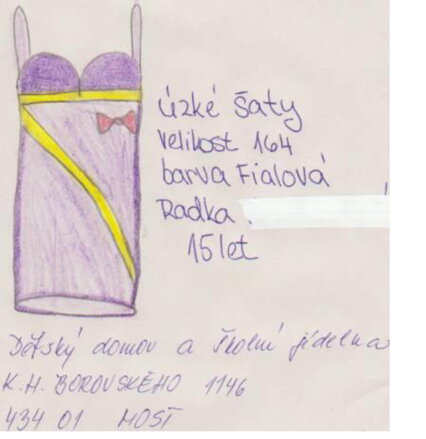 úzké šaty
velikost 164
barva Fialová
Radka
15 let
Dětský domov a školní jídelna
K.H. BOROVSKÉHO 1146
434 01 MOST